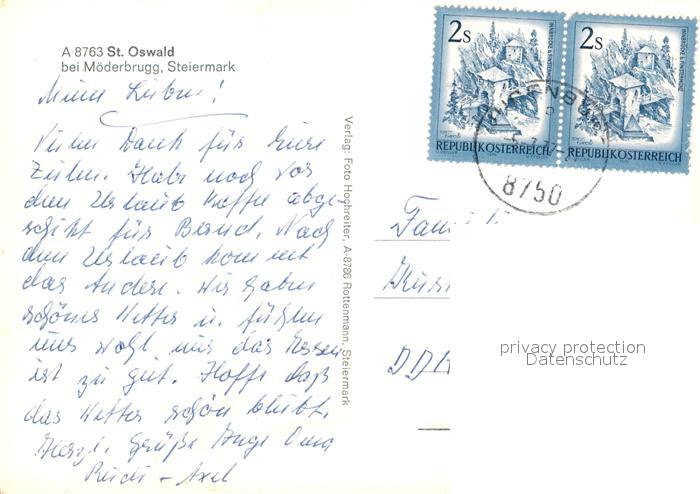 A 8763 St. Oswald
bei Möderbrugg, Steiermark
Meine Lieben!
Vielen Dank für Eure
Zeilen. Habe noch vor
dem Urlaub Kaffee abge-
schikt für Bernd. Nach
dem Urlaub kommt
das Andere. Wir haben
schönes Wetter u. fühlen
uns wohl nur das Essen
ist zu gut. Hoffe daß
das Wetter schön bleibt.
Herzl. Grüße Inge Oma
Rudi - Axel
Verlag: Foto Hochreiter, A-8786 Rottenmann, Steiermark
2s
REPUBLIK ÖSTERREICH
2s
REPUBLIK ÖSTERREICH
8750
Fam
DDR
privacy protection
Datenschutz